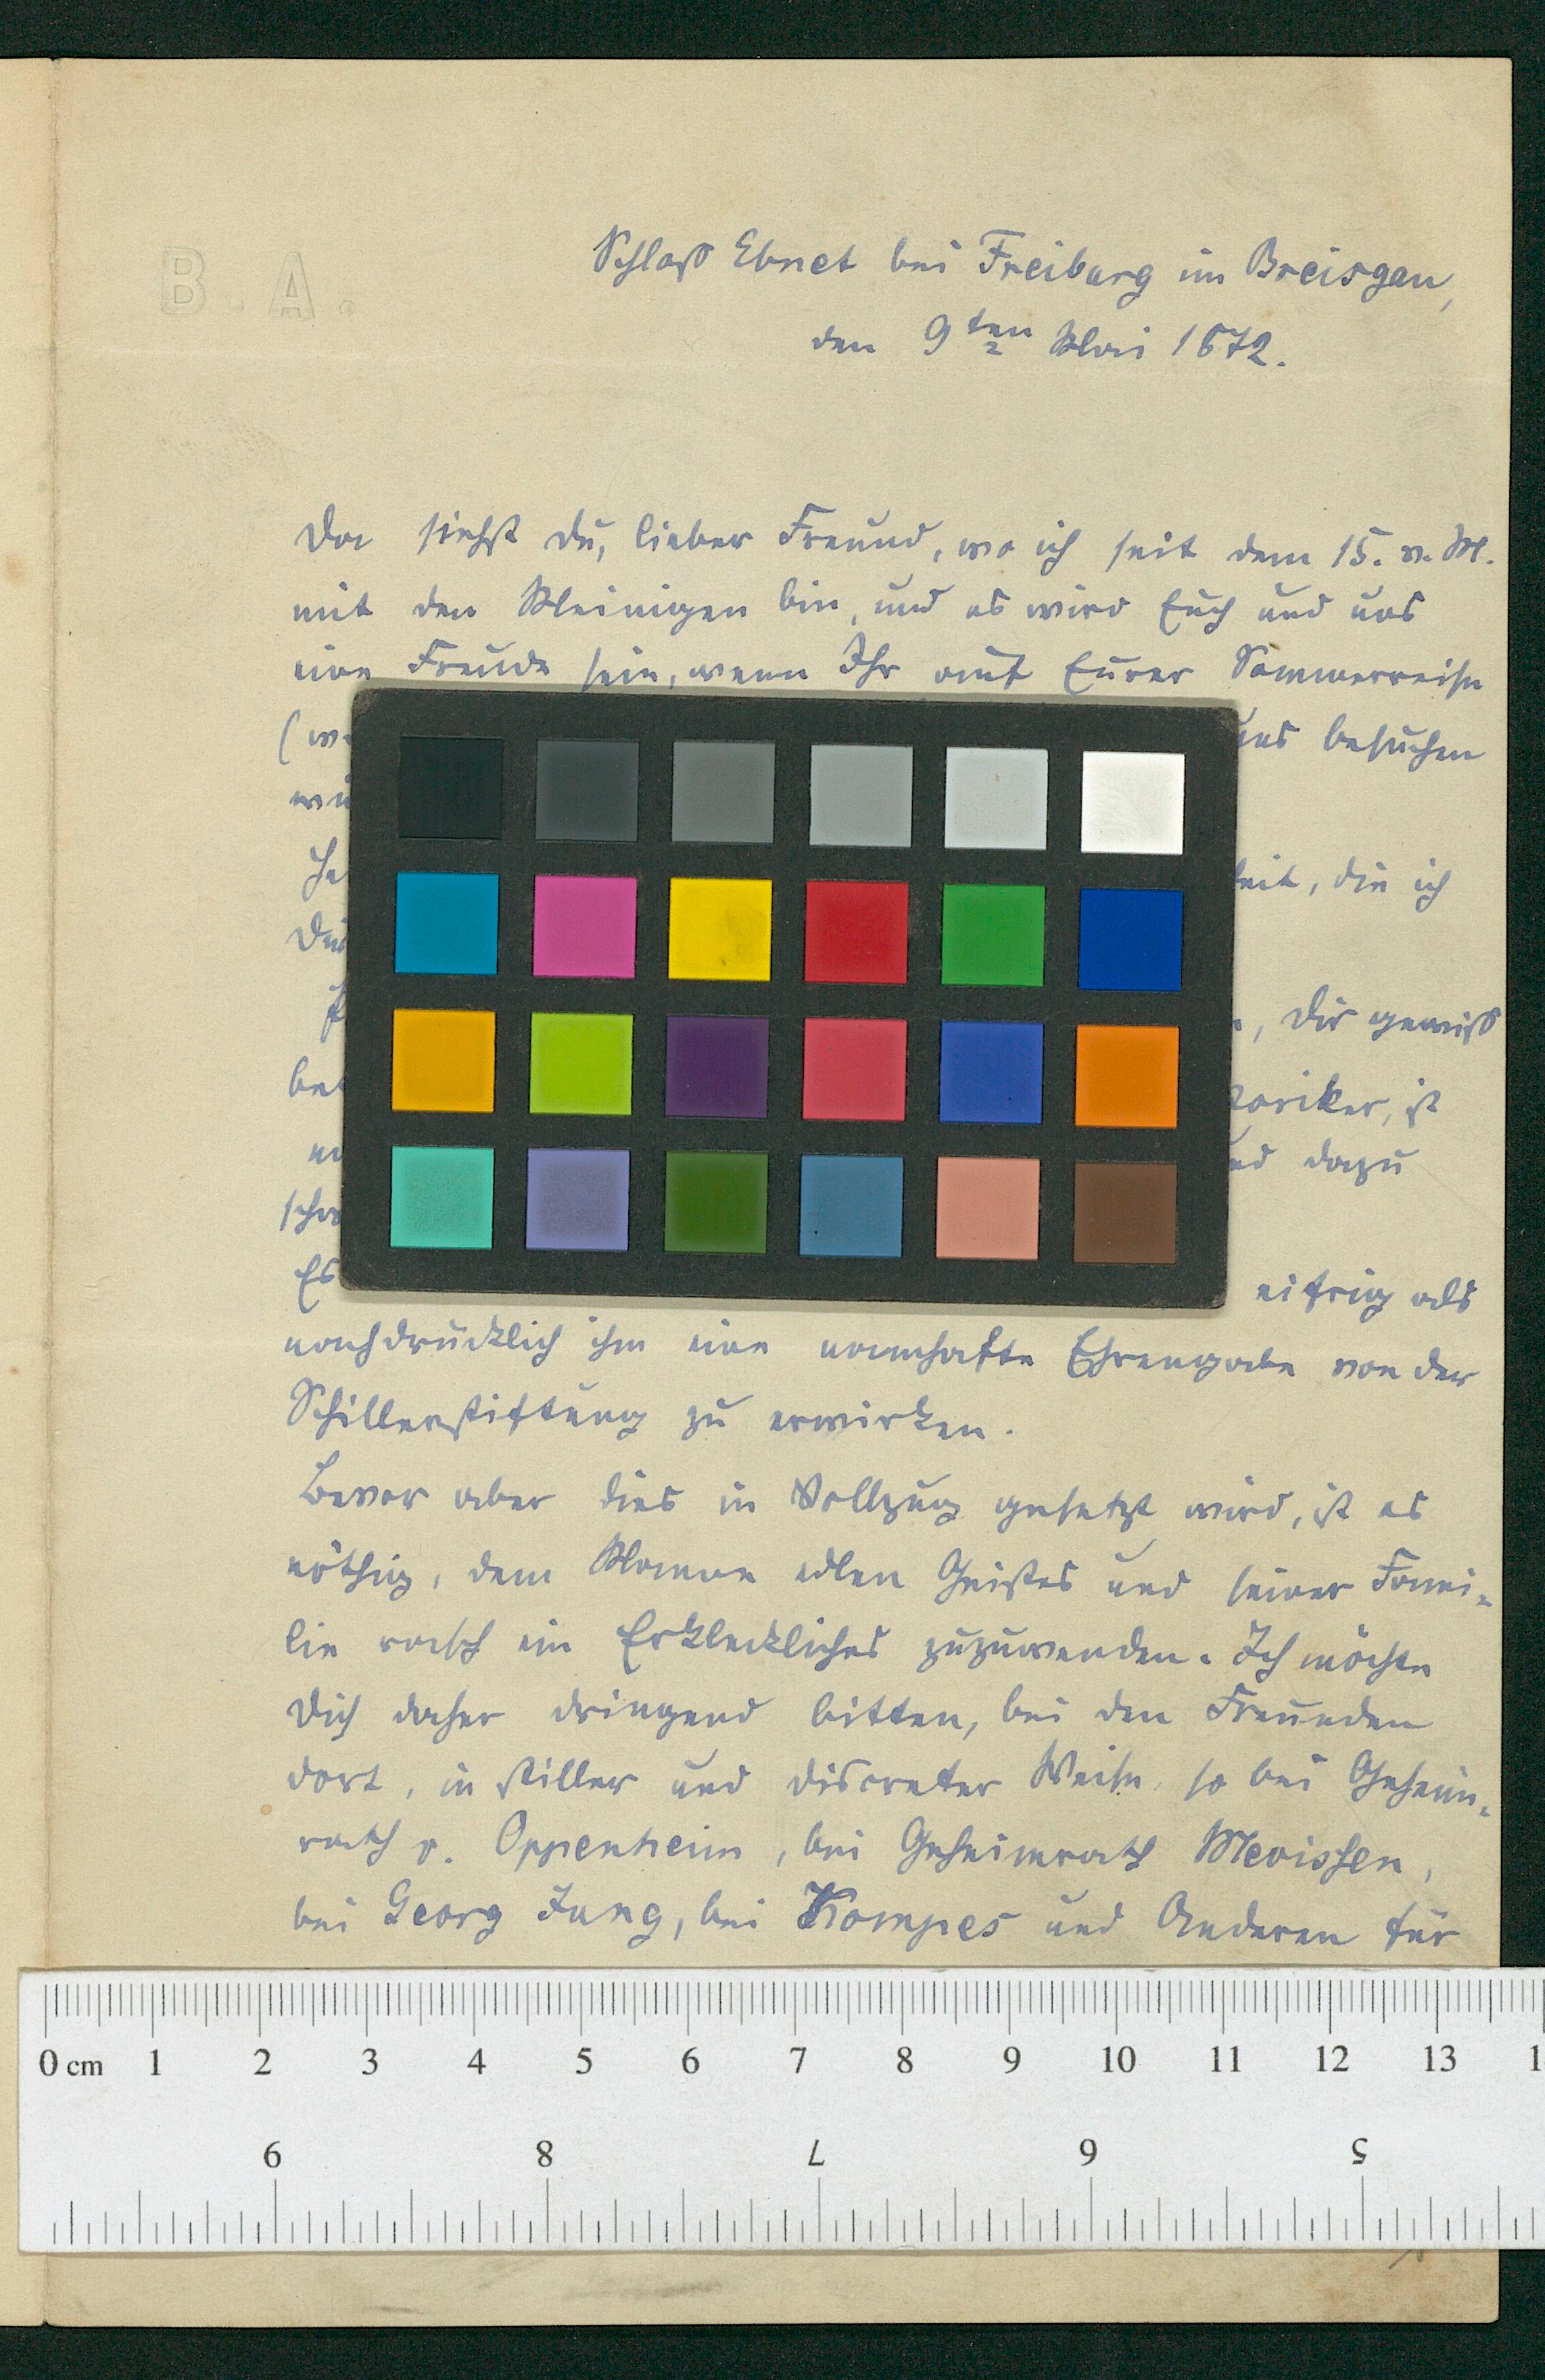 B. A.
Schloß Ebnet bei Freiburg im Breisgau,
den 9ten Mai 1872.
Da siehst Du, lieber Freund, wo ich seit dem 15. v. M.
mit den Meinigen bin, und es wird Euch und uns
eine Freude sein, wenn Ihr auf Eurer Sommerreise
uns besuchen
die ich
Dir gewiß
ist
dazu
Es eifrig als
nachdrücklich ihm eine namhafte Ehrengabe von der
Schillerstiftung zu erwirken.
Bevor aber dies in Vollzug gesetzt wird, ist es
nöthig, dem Manne edlen Geistes und seiner Fami-
lie rasch ein Erkleckliches zuzuwenden. Ich möchte
Dich daher dringend bitten, bei den Freunden
dort, in stiller und discreter Weise, so bei Geheim-
rath v. Oppenheim, bei Geheimrath Mevissen,
bei Georg Jung, bei Kompes und Anderen für
0 cm 1 2 3 4 5 6 7 8 9 10 11 12 13
9 8 7 6 5